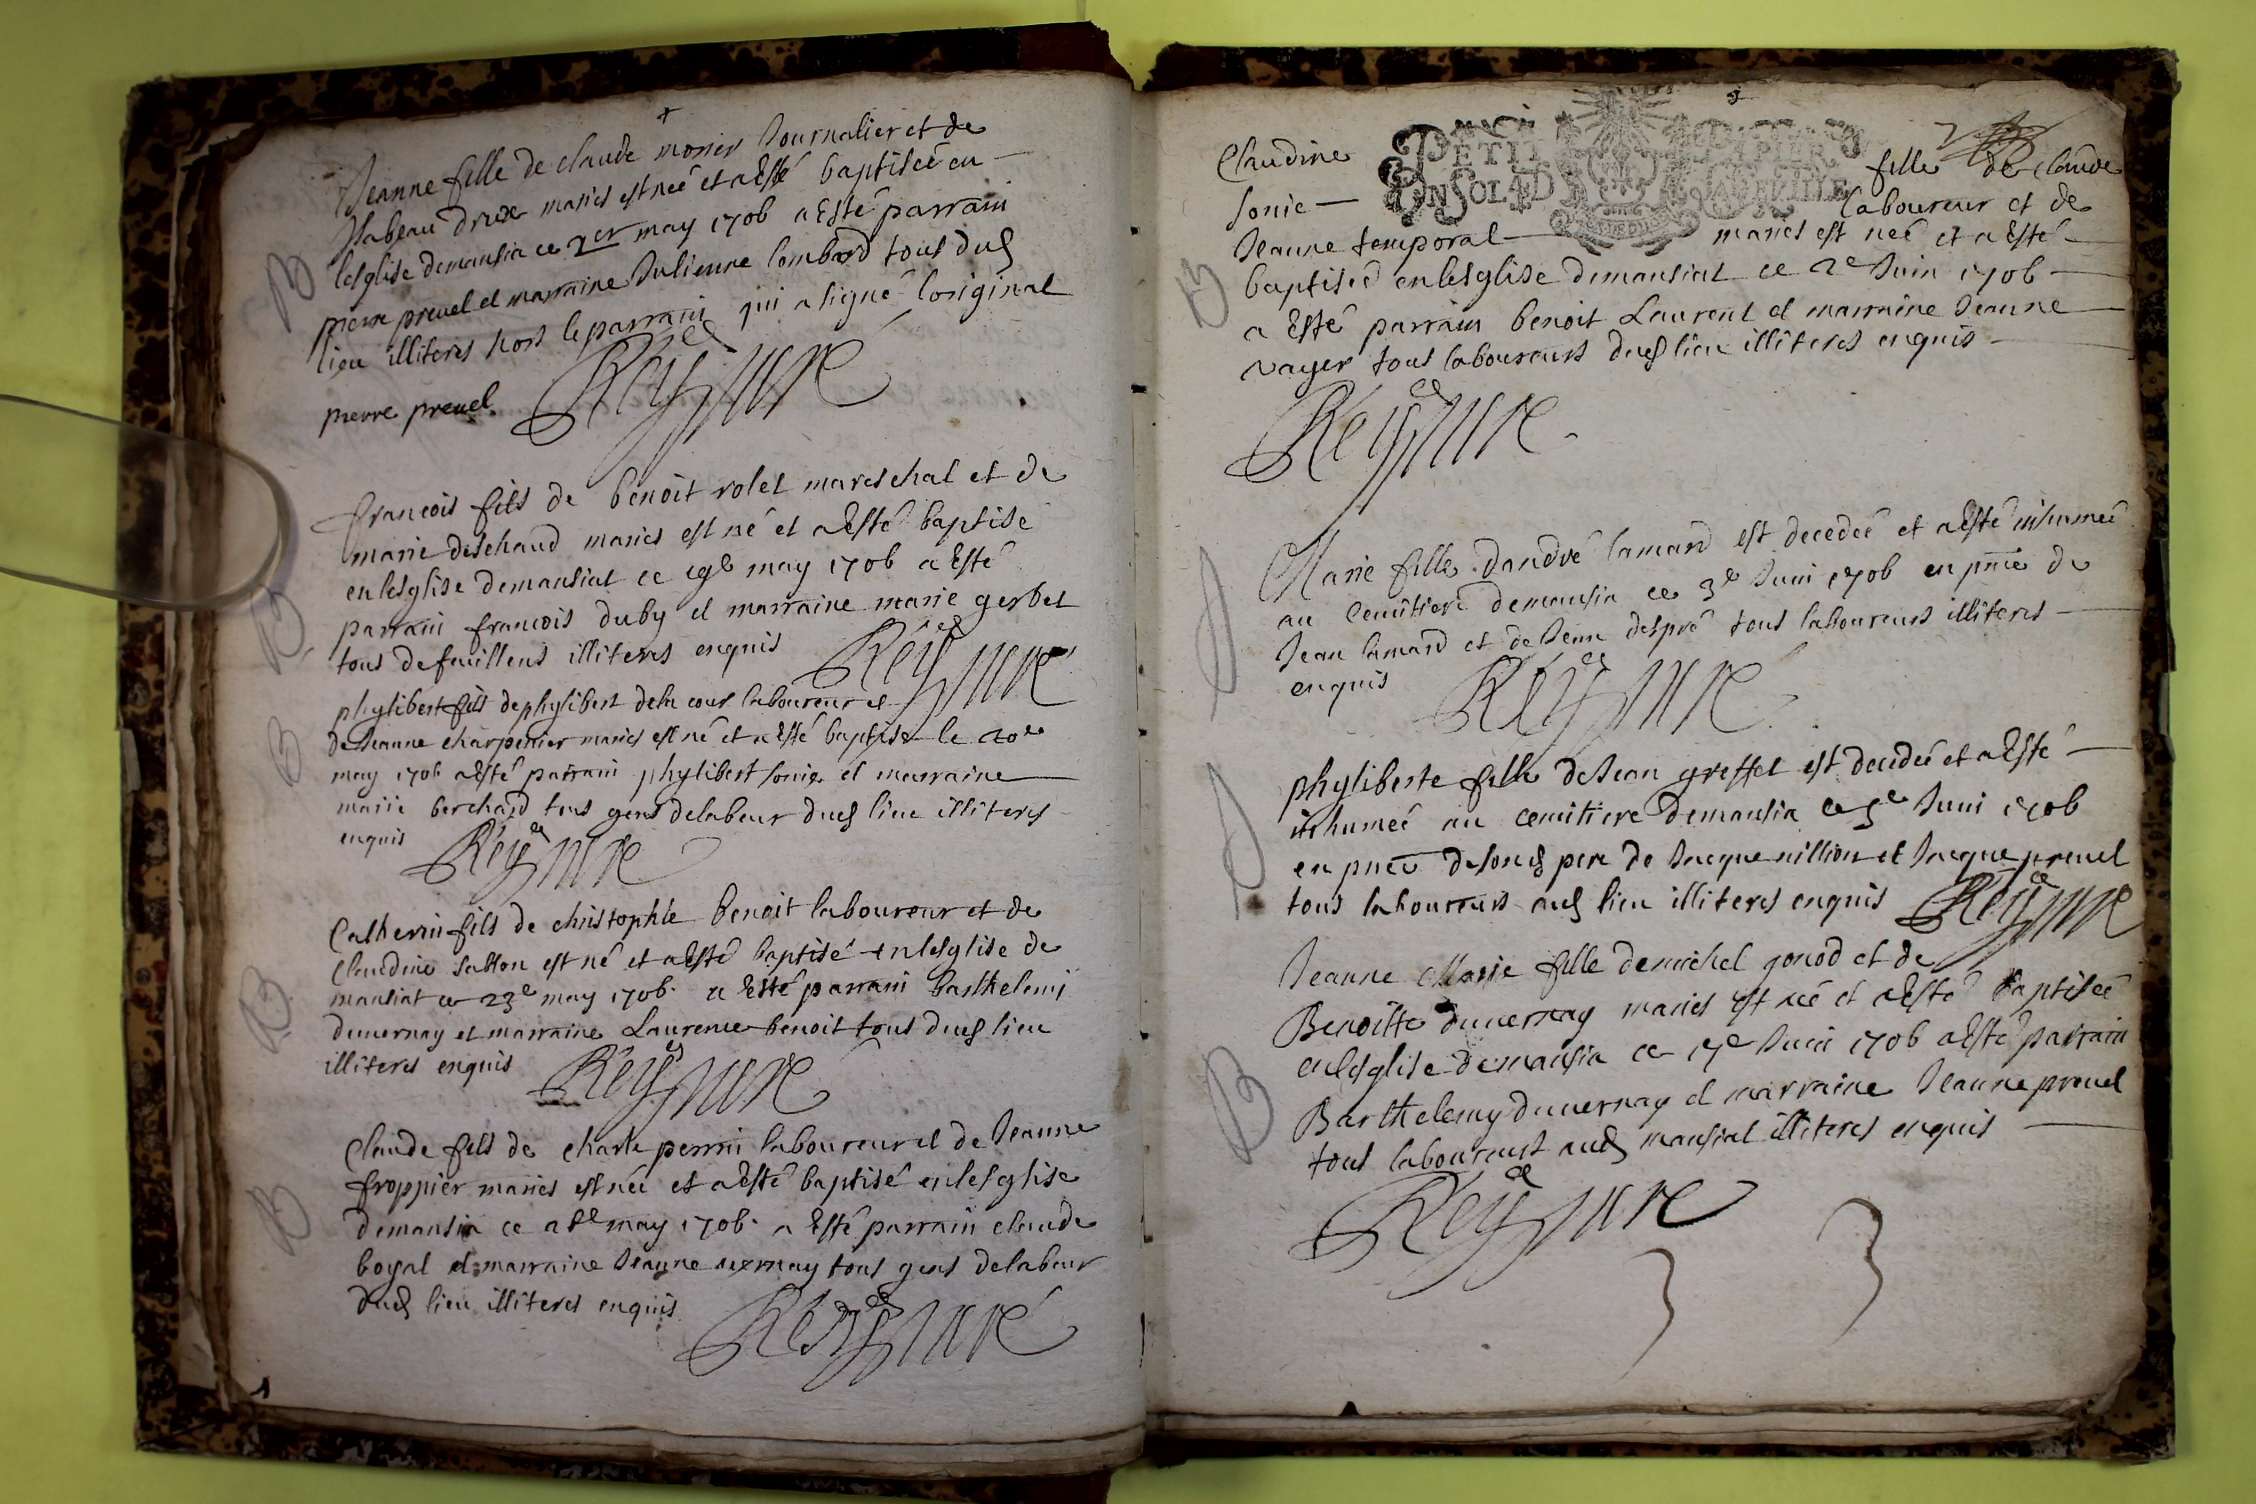 Jeanne fille de claude monier Journalier et de
Isabeau drux mariés est neé et a Esté baptiseé en
lesglise demansia ce 1er may 1706 a Esté parrain
pierre preuel et marraine Julienne lombard tous dud
lieu illiteres hors le parrain qui a signé loriginal
pierre preuel. Rey curé
B
françois fils de benoit rolet mareschal et de
marie deschaud mariés est né et a Esté baptisé
en lesglise demansiat ce 19e may 1706 a Esté
parrain françois duby et marraine marie gerbet
tous defeuillens illiteres enquis Rey curé
B
phylibert fils dephylibert dela cour laboureur et
de Jeanne charpentier mariés est né et a Esté baptisé le 20e
may 1706 a Esté parrain phylibert sonie et marraine
marie berchard tous gens delabeur dud lieu illiteres
enquis Rey curé
B
Catherin fils de christophle benoit laboureur et de
claudine sablon est né et a Esté baptisé en lesglise de
mansiat ce 23e may 1706. a Esté parrain barthelemi
duuernay et marraine Laurence benoit tous dud lieu
illiteres enquis Rey curé
B
Claude fils de charle perrin laboureur et de Jeanne
froppier mariés est née et a Esté baptisé en lesglise
demansia ce may 1706. a Esté parrain claude
boyal et marraine Jeanne uernay tous gens delabeur
dud lieu illiteres enquis Rey curé
B
PETIT PAPIER
UN SOL 4 D LA FEUILLE
Claudine fille de claude
sonie laboureur et de
Jeanne temporal mariés est neé et a Esté
baptiseé en lesglise demansiat ce 2e Juin 1706
a Esté parrain benoit Laurent et marraine Jeanne
uayer tous laboureurs dud lieu illiteres enquis
Rey curé
B
Marie fille dandré lamard est decedeé et a Esté inhumeé
au cemitiere demansia ce 3e Juin 1706 en pnce de
Jean lamard et de Jean despré tous laboureurs illiteres
enquis Rey curé
phyliberte fille de Jean greffet est decedeé et a Esté
inhumeé au cemitiere demansia ce 5e Juin 1706
en pnce de son d pere de Jacque uillion et Jacque preuel
tous laboureurs aud lieu illiteres enquis Rey curé
Jeanne Marie fille demichel gonod et de
Benoitte duuernay mariés est neé et a Esté baptiseé
en lesglise demansia ce 17e Juin 1706 a Esté parrain
Barthelemy duuernay et marraine Jeanne preuel
tous laboureurs aud mansiat illiteres enquis
Rey curé
B